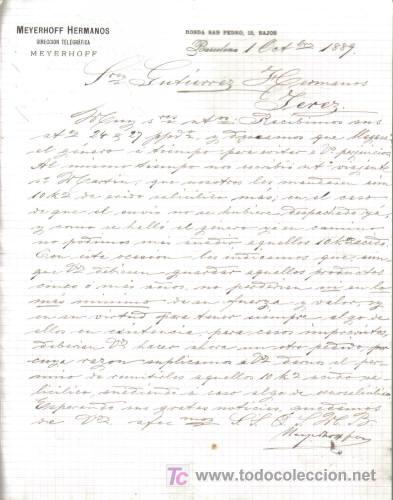 MEYERHOFF HERMANOS
DIRECCION TELEGRÁFICA
MEYERHOFF
RONDA SAN PEDRO, 15, BAJOS
Barcelona 1 Octbre 1889
Sres Gutierrez Hermanos
Jerez
Muy sres ntros. Recibimos sus
24 & 27 y deseamos que llegase
el género a tiempo para evitar a Vds perjuicios
Al mismo tiempo nos escribió nto viajante
sr Martin, que nosotros les mandasen son
10 k de acido salicilico mas; en el caso
de que el envio no se hubiera despachado ya,
y como se halló el género ya en camino
no podiamos más añadir aquellos 10 ks acido
Con esta ocasion les indicamos que, aun
que Vds debiesen guardar aquellos productos
cinco ó más años, no perderian ni en lo
más minimo de su fuerza y valor, y
en su virtud para tener siempre algo de
ellos en existencia para casos imprevistos,
deberian Vds hacer ahora un otro pedido, por
cuya razon suplicamos a Vds darnos el per
miso de remitirles aquellos 10 k acido sa
licilico, añadiendo a caso algo de
Esperando sus gratas noticias, quedamos
de Vds afec
Meyerhoff
TC www.todocoleccion.net